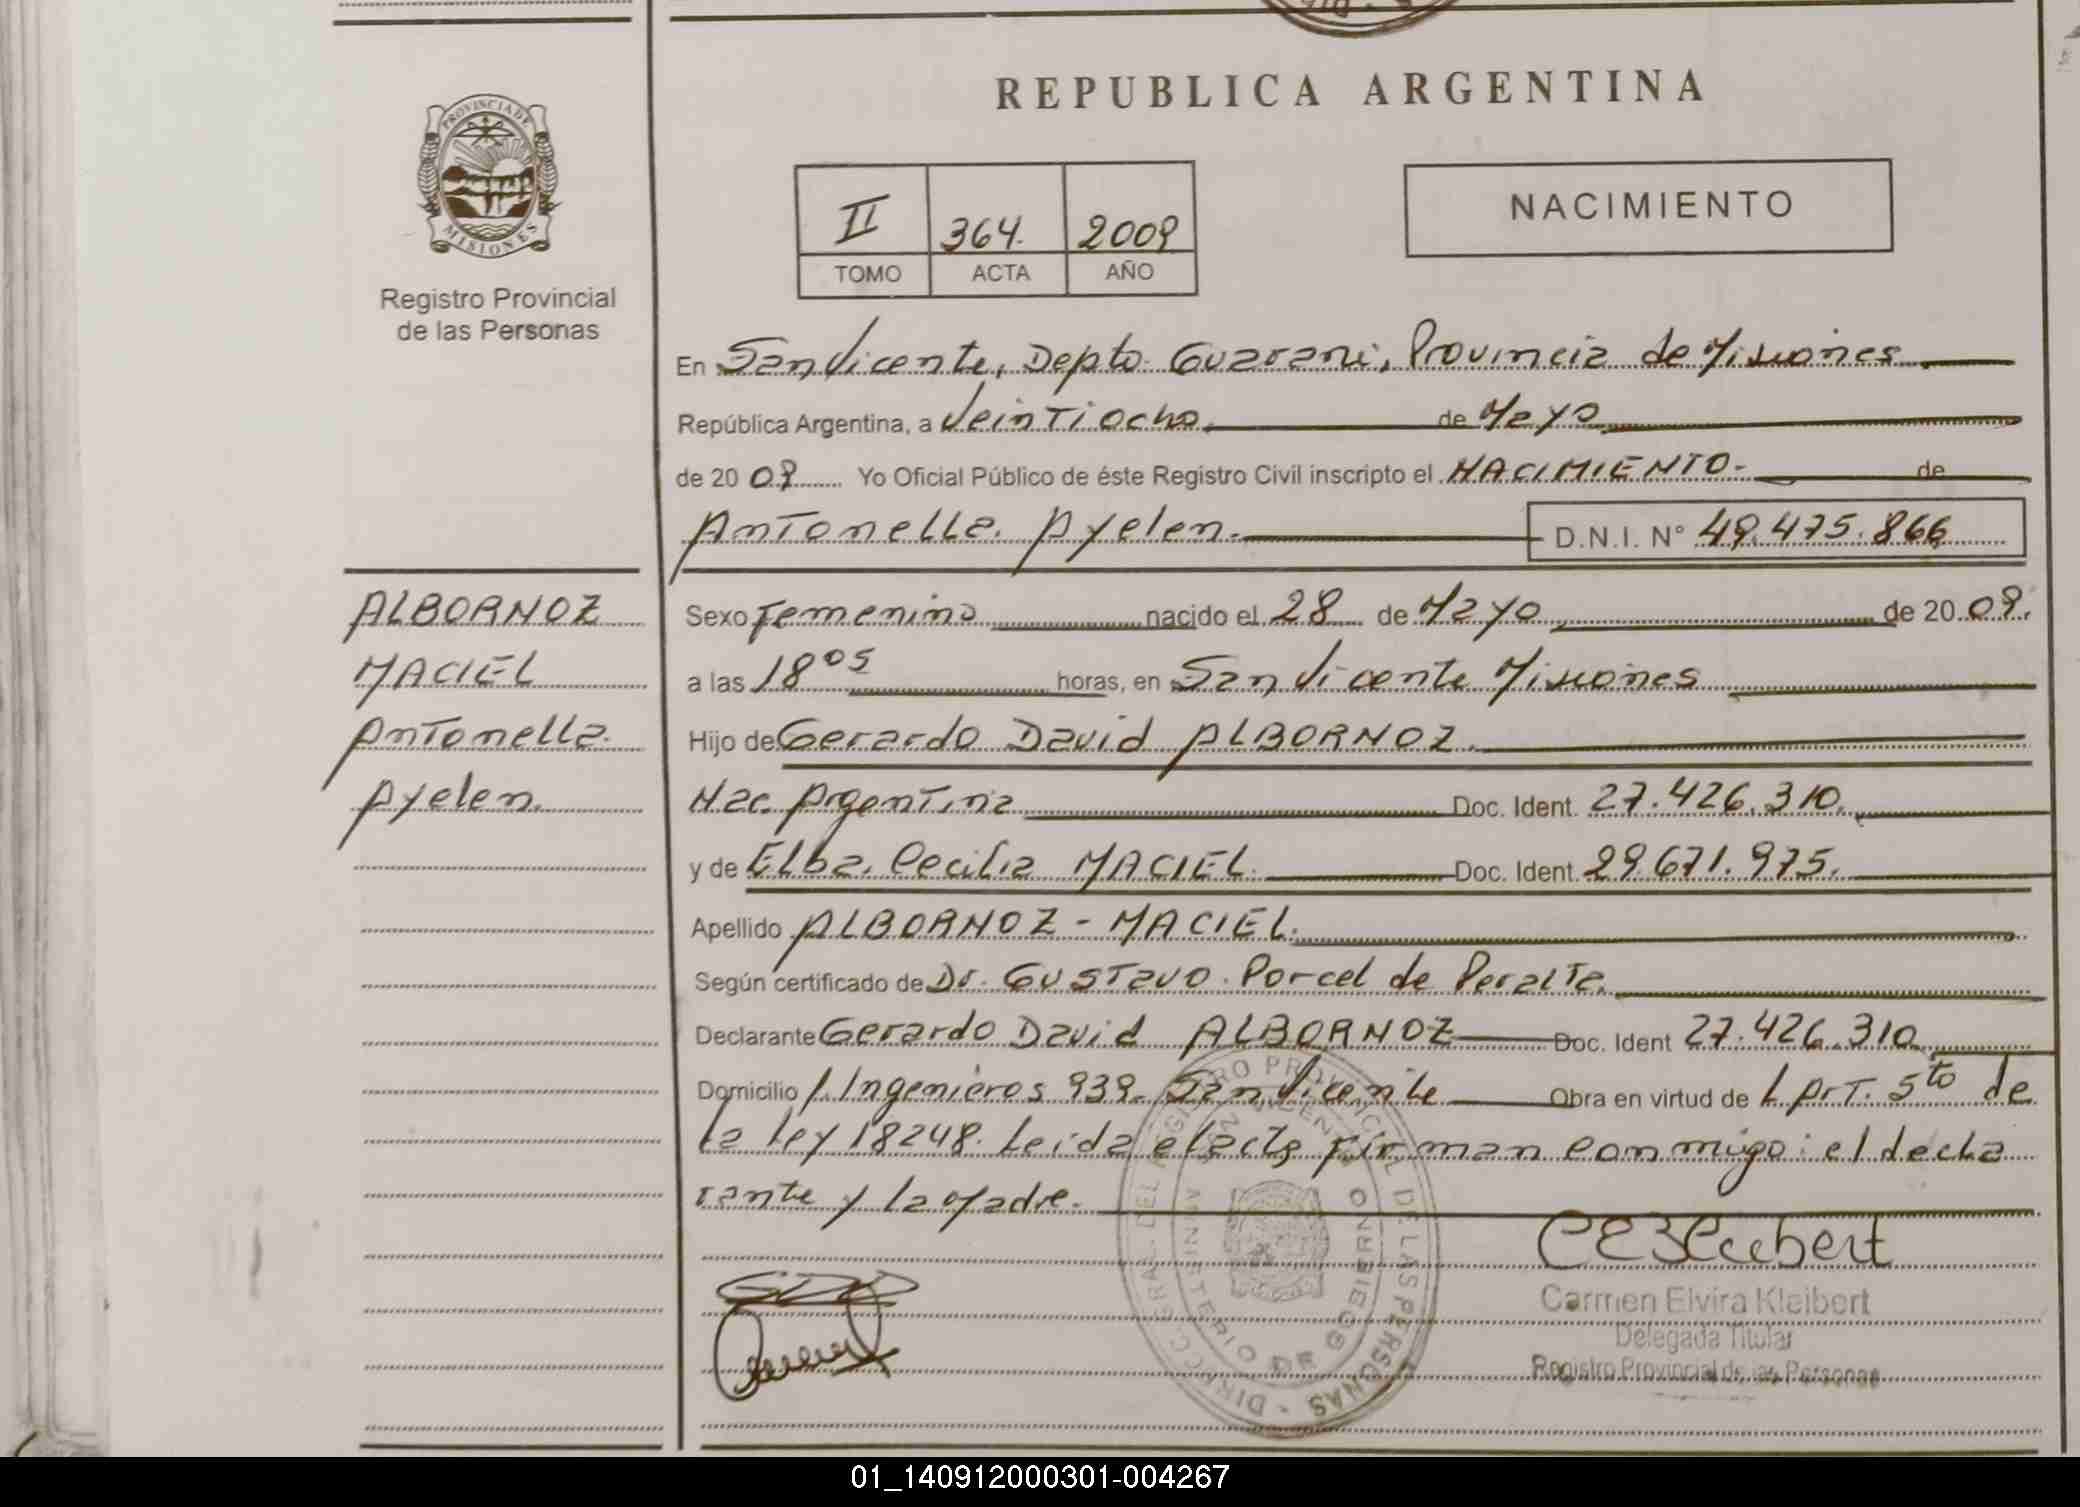 REPUBLICA ARGENTINA
PROVINCIA DE MISIONES
Registro Provincial
de las Personas
II 364. 2009
TOMO ACTA AÑO
NACIMIENTO
En San Vicente, Depto. Guarani, Provincia de Misiones
República Argentina, a Veintiocho de Mayo
de 20 09 Yo Oficial Público de éste Registro Civil inscripto el NACIMIENTO- de
Antonella Ayelen. D.N.I. N° 49.475.866
ALBORNOZ
MACIEL
Antonella
Ayelen
Sexo Femenino nacido el 28 de Mayo de 20 09.
a las 18 05 horas, en San Vicente Misiones
Hijo de Gerardo David ALBORNOZ.
Nac. Argentina Doc. Ident. 27.426.310.
y de Elba Cecilia MACIEL. Doc. Ident. 29.671.975.
Apellido ALBORNOZ - MACIEL.
Según certificado de Dr. Gustavo Porcel de Peralta.
Declarante Gerardo David ALBORNOZ Doc. Ident 27.426.310
Domicilio J. Ingenieros 939. San Vicente Obra en virtud de L Art. 5to de
la ley 18248. Leida el acta firman conmigo: el decla
rante y la Madre.
DIRECC. GRAL. DEL REGISTRO PROVINCIAL DE LAS PERSONAS -
SAN VICENTE
MINISTERIO DE GOBIERNO
Carmen Elvira Kleibert
Delegada Titular
Registro Provincial de las Personas
01_140912000301-004267